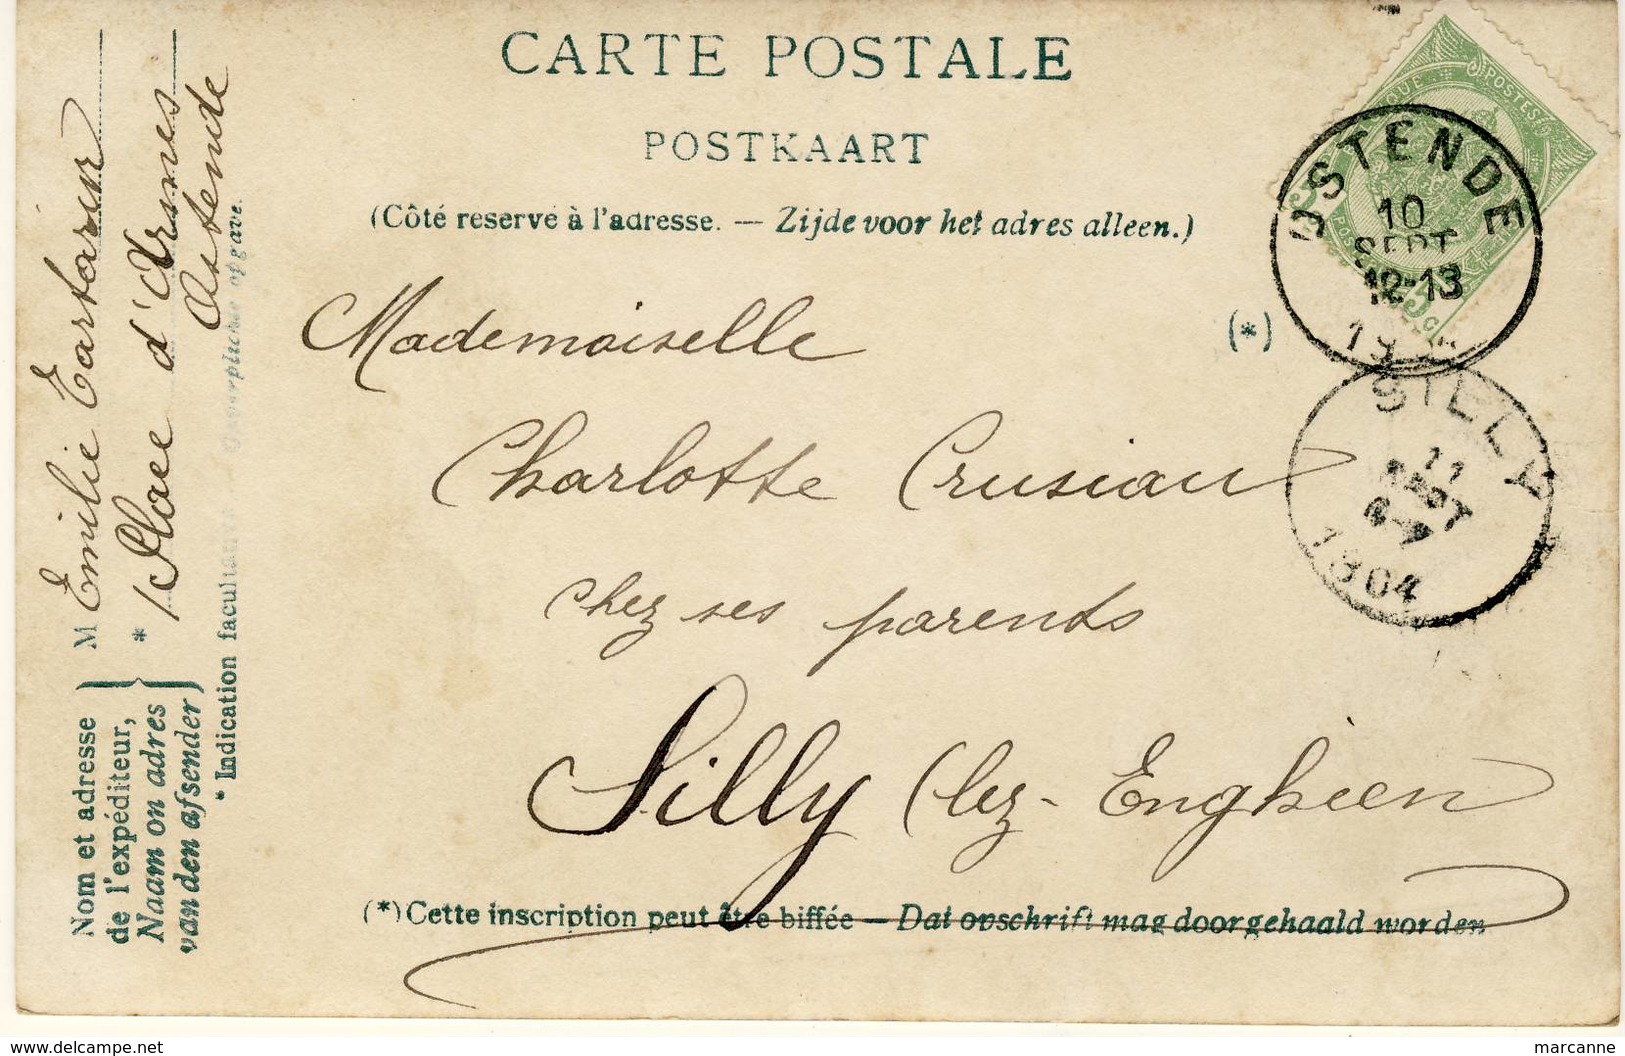 CARTE POSTALE
POSTKAART
(Côté reservé à l'adresse. — Zijde voor het adres alleen.)
(*)
Mademoiselle
Charlotte Crusiau
chez ses parents
Silly (lez-Enghien
(*) Cette inscription peut être biffée — Dat opschrift mag doorgehaald worden
Nom et adresse
de l'expéditeur,
Naam on adres
van den afsender
M Emilie Tartarin
* Place d'Armes
Ostende
* Indication facultative
POSTES
OSTENDE
10
SEPT
12-13
SILLY
11
SEPT
1904
delcampe.net
marcanne